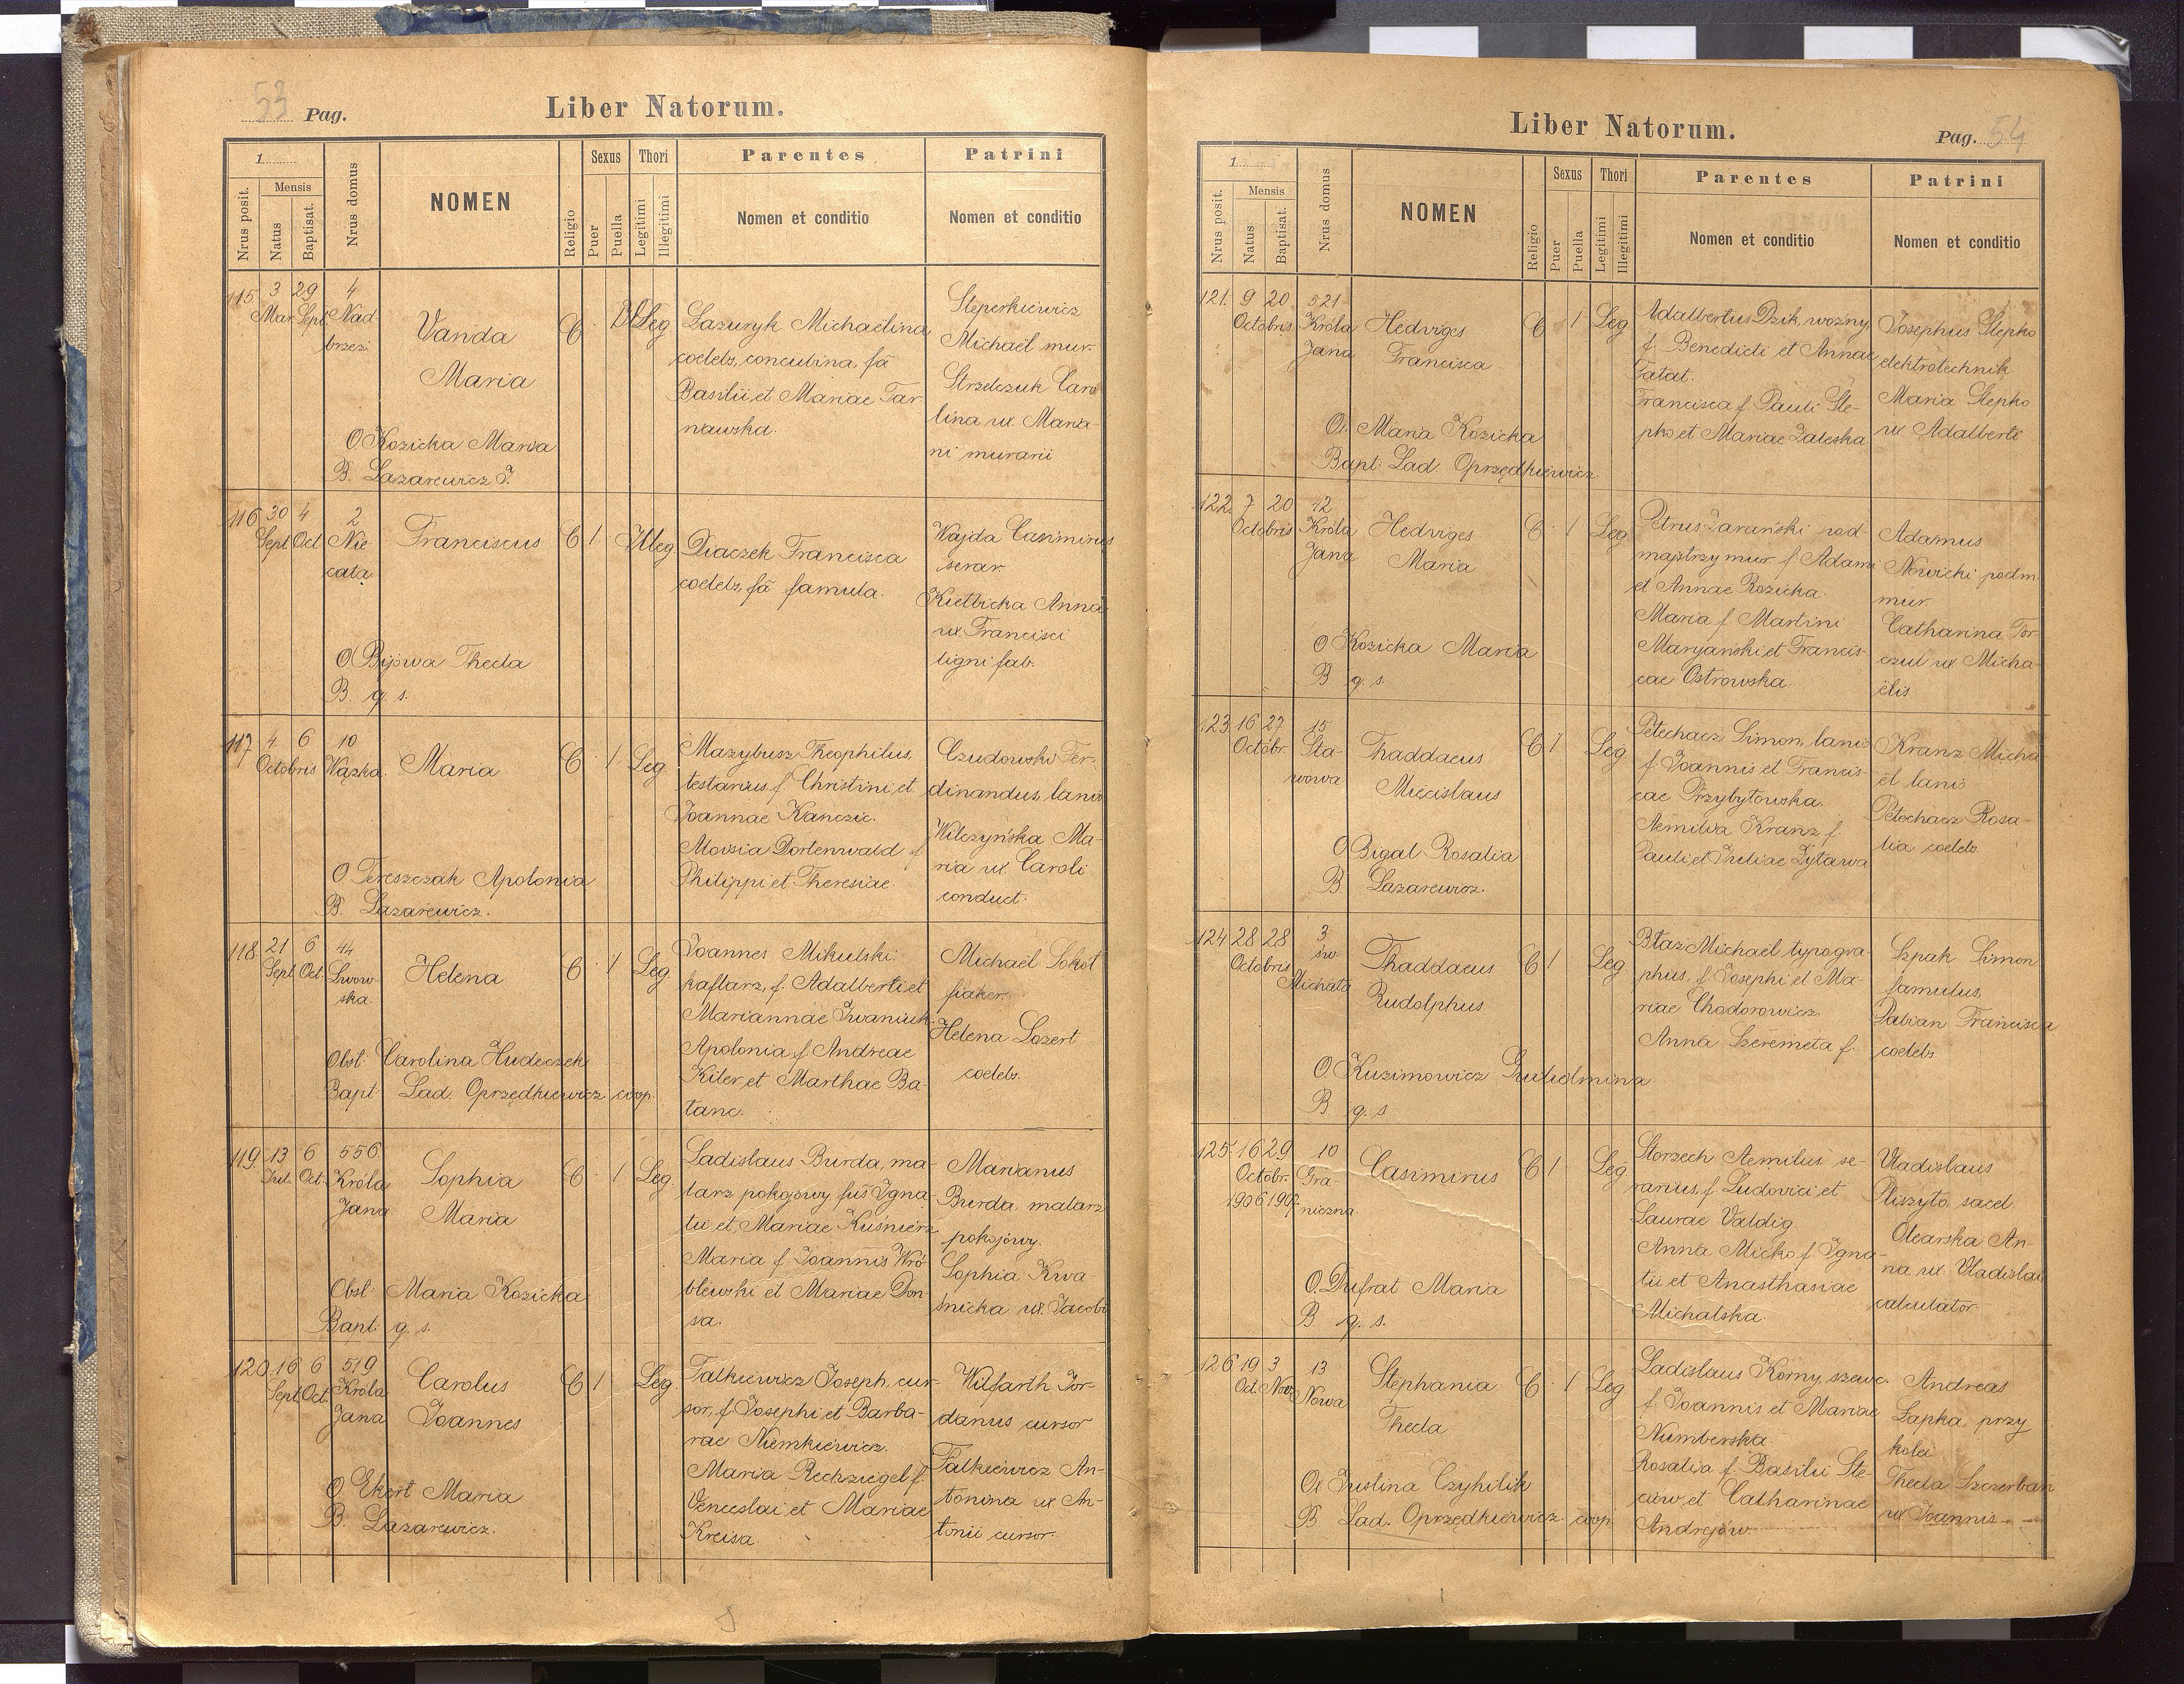 53 Pag.
Liber Natorum.
1
Nrus posit.
Mensis
Natus
Baptisat.
Nrus domus
NOMEN
Religio
Sexus
Puer
Puella
Thori
Legitimi
Illegitimi
Parentes
Nomen et conditio
Patrini
Nomen et conditio
115
3 29
Mar. Sept.
4
Nad
brzezi
Vanda
Maria
C
Lazuryk Michaëlina
coelebs, concubina, fa
Basilii et Mariae Tar-
nawska.
Steperkiewicz
Michaël mur.
Strzelczuk Caro
lina ux. Maria-
ni murarii
O Kozicka Maria
B. Lazarewicz J.
116
30 4
Sept. Oct.
2
Nie
cała
Franciscus
C 1
Illeg.
Diaczek Francisca
coelebs, fa famula.
Wajda Casimirus
serar.
Kiełbicka Anna
ux. Francisci
ligni fab.
O Bijowa Thecla
B. q. s.
117
4 6
Octobris
10
Wązka
Maria
C 1 Leg.
Mazybusz Theophilus,
testarius f. Christini et
Joannae Kanczic.
Moisia Dortenwald f.
Philippi et Theresiae.
Czudowski Fer-
dinandus, lanio
Wilczyńska Ma-
ria ux. Caroli
conduct.
O Tereszczak Apolonia
B. Lazarewicz.
118
21 6
Sept. Oct.
44
Lwow
ska
Helena
C 1 Leg.
Joannes Mikulski
kaflarz, f. Adalberti et
Mariannae Iwaniuk.
Apolonia f. Andreae
Kiler et Marthae Ba-
łanc.
Michaël Sokół
fiaker.
Helena Lozert
coelebs.
Obst: Carolina Hudeczek
Bapt: Lad. Oprzędkiewicz coop.
119.
13 6
Jul. Oct.
556.
Króla
Jana
Sophia
Maria
C 1 Leg.
Ladislaus Burda, ma-
larz pokojowy, fus Igna-
tii et Mariae Kuśnierz
Maria f. Joannis Wró-
blewski et Mariae Don-
sa.
Marianus
Burda, malarz
pokojowy.
Sophia Kwa-
śnicka ux. Jacobi
Obst: Maria Kozicka
Bapt: q. s.
120.
16 6
Sept. Oct.
519
Króla
Jana
Carolus
Joannes
C 1 Leg.
Falkiewicz Joseph, cur-
sor, f. Josephi et Barba-
rae Niemkiewicz.
Maria Rechziegel f.
Venceslai et Mariae
Kreisa
Wilfarth Jor-
danus cursor
Falkiewicz An-
tonina ux An-
tonii cursor.
O. Ekert Maria
B. Lazarewicz.
Liber Natorum.
Pag. 54
1
Nrus posit.
Mensis
Natus
Baptisat.
Nrus domus
NOMEN
Religio
Sexus
Puer
Puella
Thori
Legitimi
Illegitimi
Parentes
Nomen et conditio
Patrini
Nomen et conditio
121.
9 20
Octobris
521
Króla
Jana
Hedviges
Francisca
C 1 Leg
Adalbertus Dzik, woźny,
f. Benedicti et Annae
Tatat.
Francisca f. Pauli Ste-
pko et Mariae Zaleska
Josephus Stepko
elektrotechnik
Maria Stepko
ux Adalberti
O. Maria Kozicka
Bapt: Lad. Oprzędkiewicz
122.
7 20
Octobris
42
Króla
Jana
Hedviges
Maria
C 1 Leg.
Petrus Zarański pod-
majstrzy mur. f. Adami
et Annae Rozicka.
Maria f. Martini
Maryański et Francis-
cae Ostrowska.
Adamus
Nowicki podm.
mur.
Catharina Tor-
czul ux Micha-
ëlis
O Kozicka Maria
B q. s.
123.
16 27
Octobr.
15
Sta-
wowa
Thaddaeus
Miecislaus
C 1 Leg
Petechacz Simon, lanio
f. Joannis et Francis-
cae Przybytowska.
Aemilia Kranz f.
Pauli et Juliae Żytawa
Kranz Micha-
ël lanio
Petechacz Rosa-
lia coelebs
O Bigal Rosalia
B Lazarewicz.
124
28 28
Octobris
3
św.
Michała
Thaddaeus
Rudolphus
C 1 Leg
Błaz Michaël typogra-
phus, f. Josephi et Ma-
riae Chodorowicz.
Anna Szeremeta f.
Szpak Simon
famulus,
Pabian Francisca
coelebs
O. Kuzimowicz Guilelmina
B q. s
125.
16 29
Octobr.
1906 1907
10
Gra-
niczna.
Casimirus
C 1 Leg
Storzech Aemilus se-
rarius, f. Ludovici et
Laurae Valdig.
Anna Micko f. Igna-
tii et Anasthasiae
Michalska.
Vladislaus
Pliszyło, sacel.
Olearska An-
na ux. Vladislai
calculator.
O. Dufrat Maria
B. q. s.
126
19 3
Oct. Nov.
13
Nowa
Stephania
Thecla
C 1 Leg.
Ladislaus Korny, szewc.
f. Joannis et Mariae
Numberska
Rosalia f. Basilii Ste-
ciów et Catharinae
Andrejów
Andreas
Łapka, przy
kolei
Thecla Szczerban
ux Joannis
O. Justina Czyhilik
B Lad. Oprzędkiewicz coop.